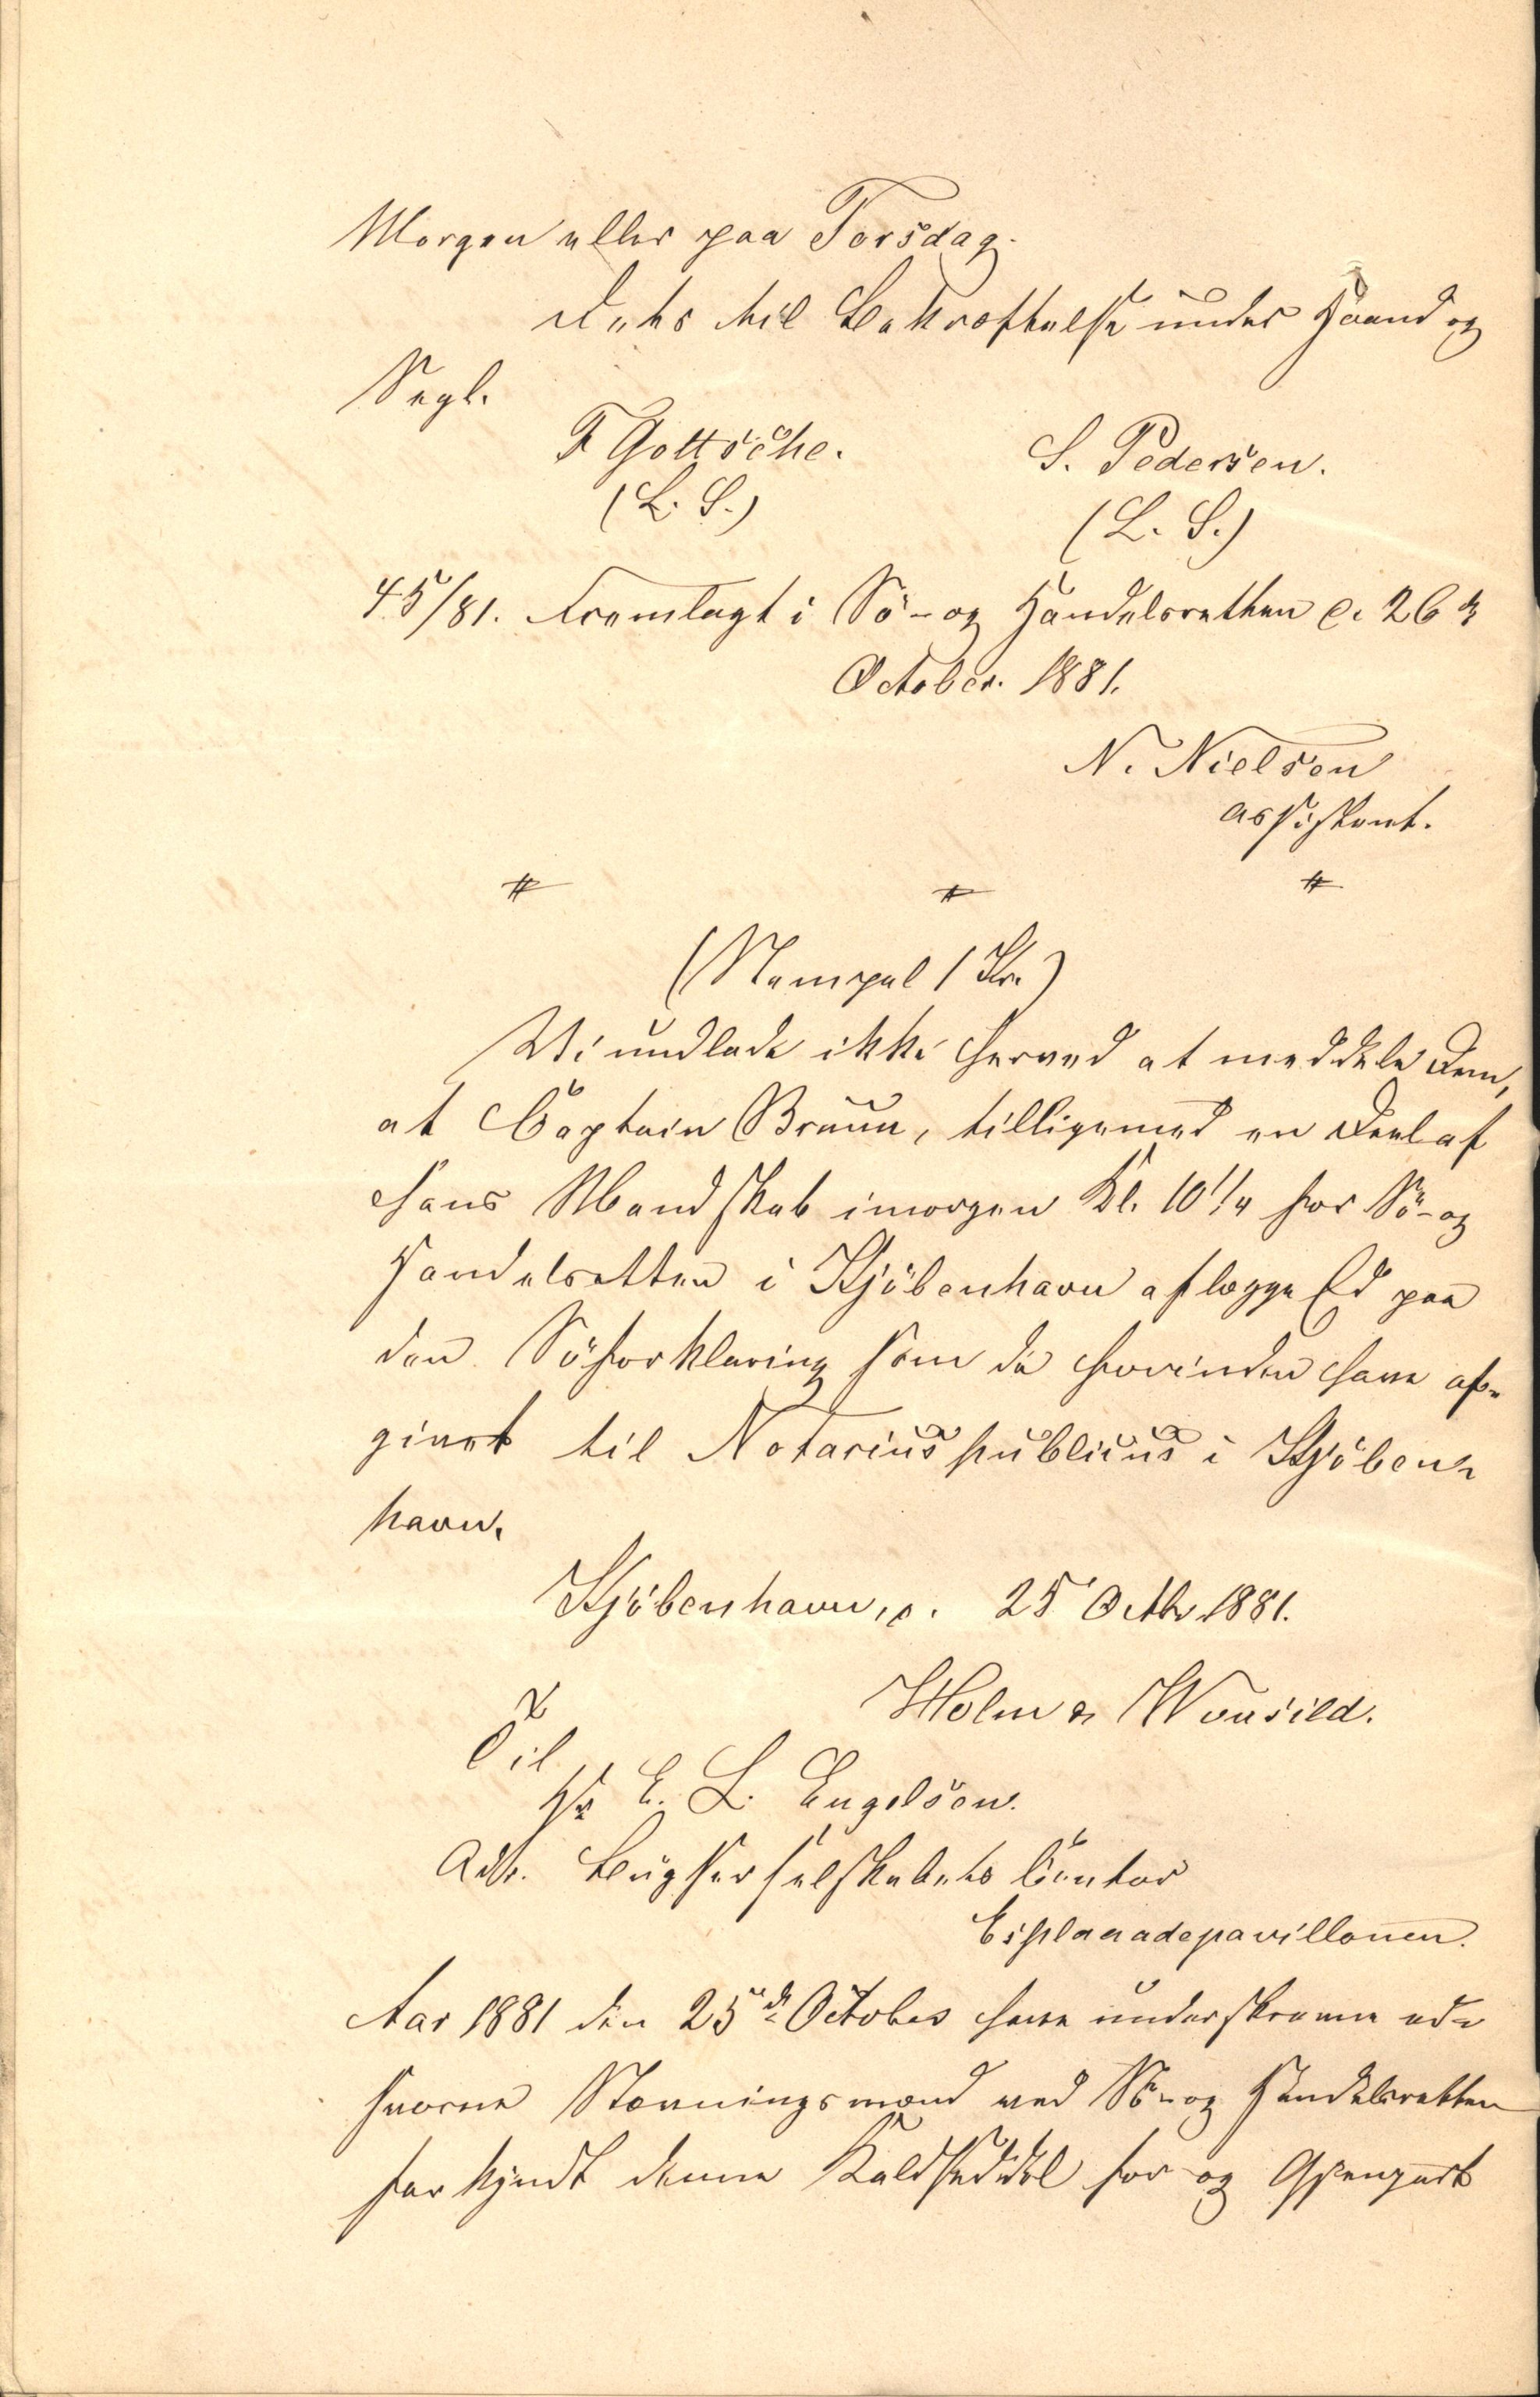 Morgen eller paa Torsdag.
Dets til Bekræftelse under Haand og
Segl.
F Gottsche. S. Pedersen.
(L. S.) (L. S.)
45/81. Fremlagt i Sö- og Handelsretten d. 26 de
October. 1881.
N. Nielsen
Assistent.
# # #
(Stempel 1 Kr.)
Vi undlade ikke herved at meddele Dem,
at Captain Bruun, tilligemed en Deel af
hans Mandskab imorgen Kl. 10 1/4 for Sö- og
Handelsretten i Kjöbenhavn aflægge Ed paa
den Söforklaring som de forinden have af-
givet til Notarius publicus i Kjöben-
havn.
Kjöbenhavn, d. 25 Octbr 1881.
Holm & Wonsild.
Til
Hr E. L. Engelsen.
Adr. Bugserselskabets Contor
Esplanadepavillonen.
Aar 1881 den 25de October have underskrevne ed-
svorne Stævningsmænd ved Sö- og Handelsretten
forkyndt denne Kaldseddel for og Gjenpart